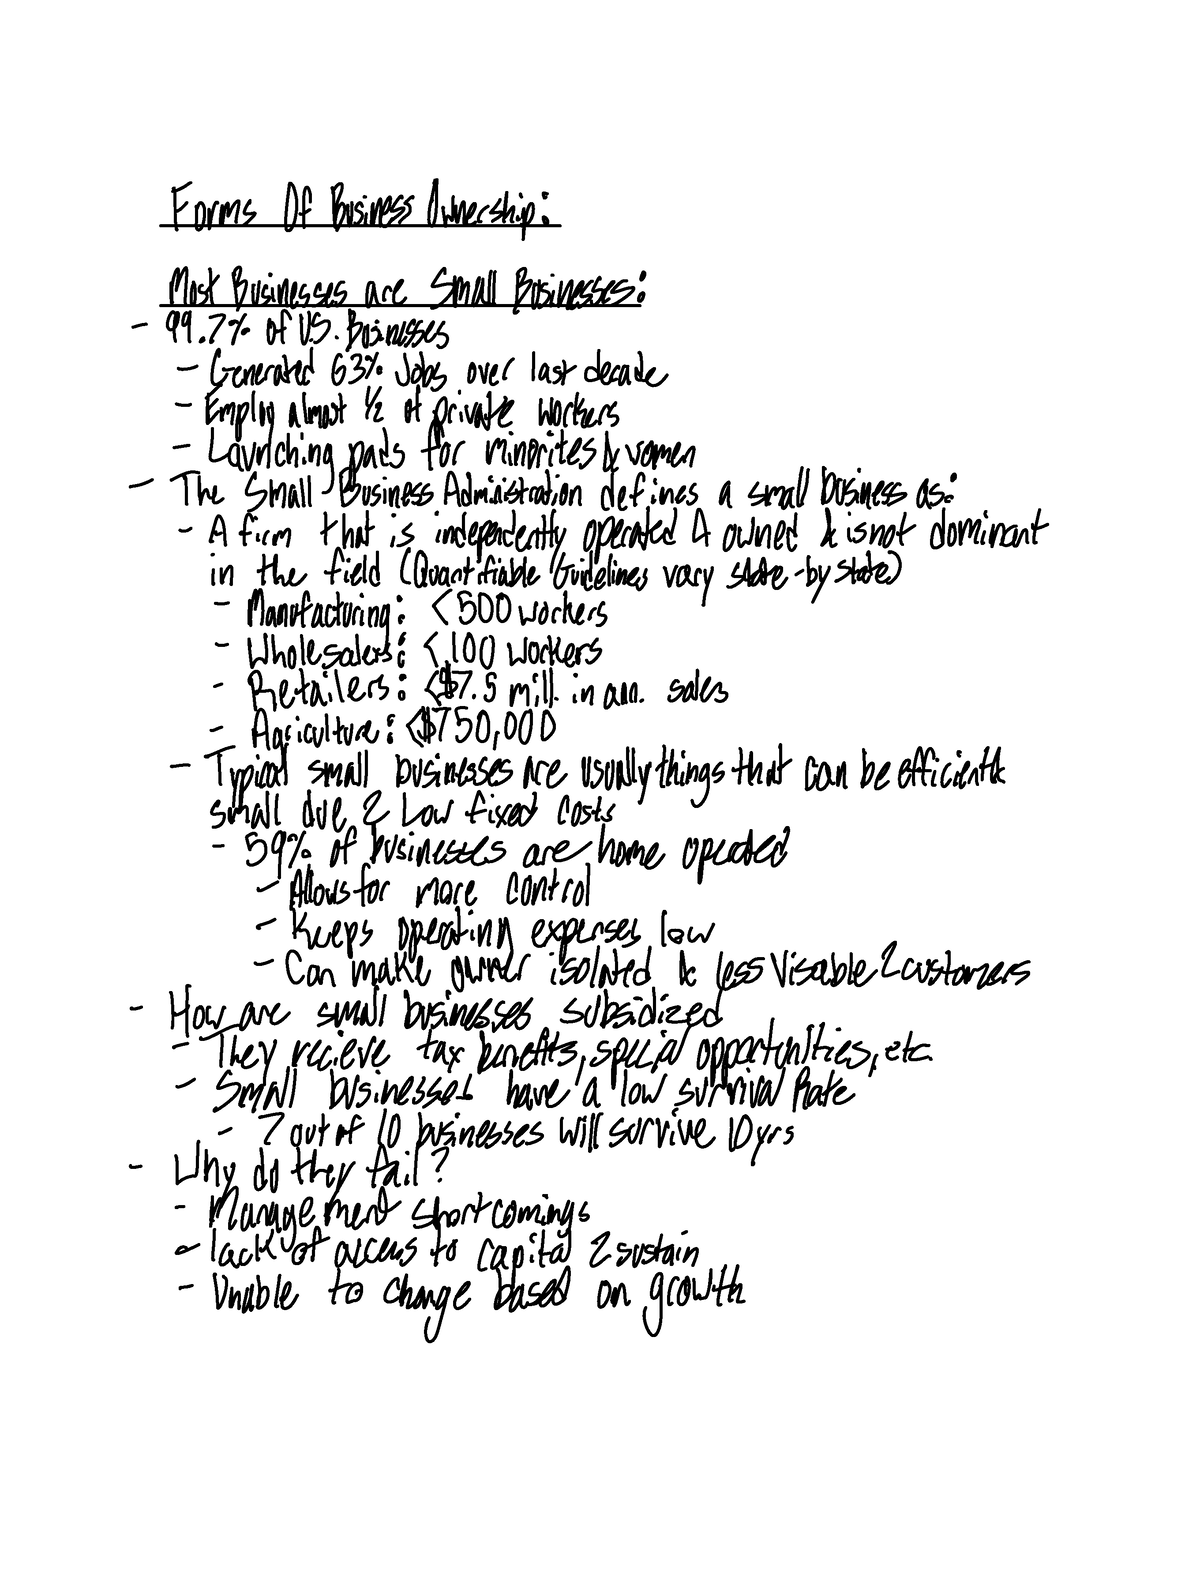 Forms Of Business Ownership:
Most Businesses are Small Businesses:
- 99.7% of U.S. Businesses
- Generated 63% Jobs over last decade
- Employ almost 1/2 of private workers
- Launching pads for minorites & women
- The Small Business Administration defines a small business as:
- A firm that is independently operated & owned & is not dominant
in the field (Quantifiable Guidelines vary state-by state)
- Manufacturing: <500 workers
- Wholesalers: <100 workers
- Retailers: <$7.5 mill. in ann. sales
- Agriculture: <$750,000
- Typical small businesses are usually things that can be efficient &
small due 2 Low fixed costs
- 59% of businesses are home operated
- Allows for more control
- Keeps operating expenses low
- Can make owner isolated & less Visable 2 customers
- How are small businesses subsidized
- They recieve tax benefits, special opportunities, etc.
- Small businesses have a low survival Rate
- 7 out of 10 businesses will survive 10 yrs
- Why do they fail?
- Management shortcomings
- lack of access to capital 2 sustain
- Unable to change based on growth